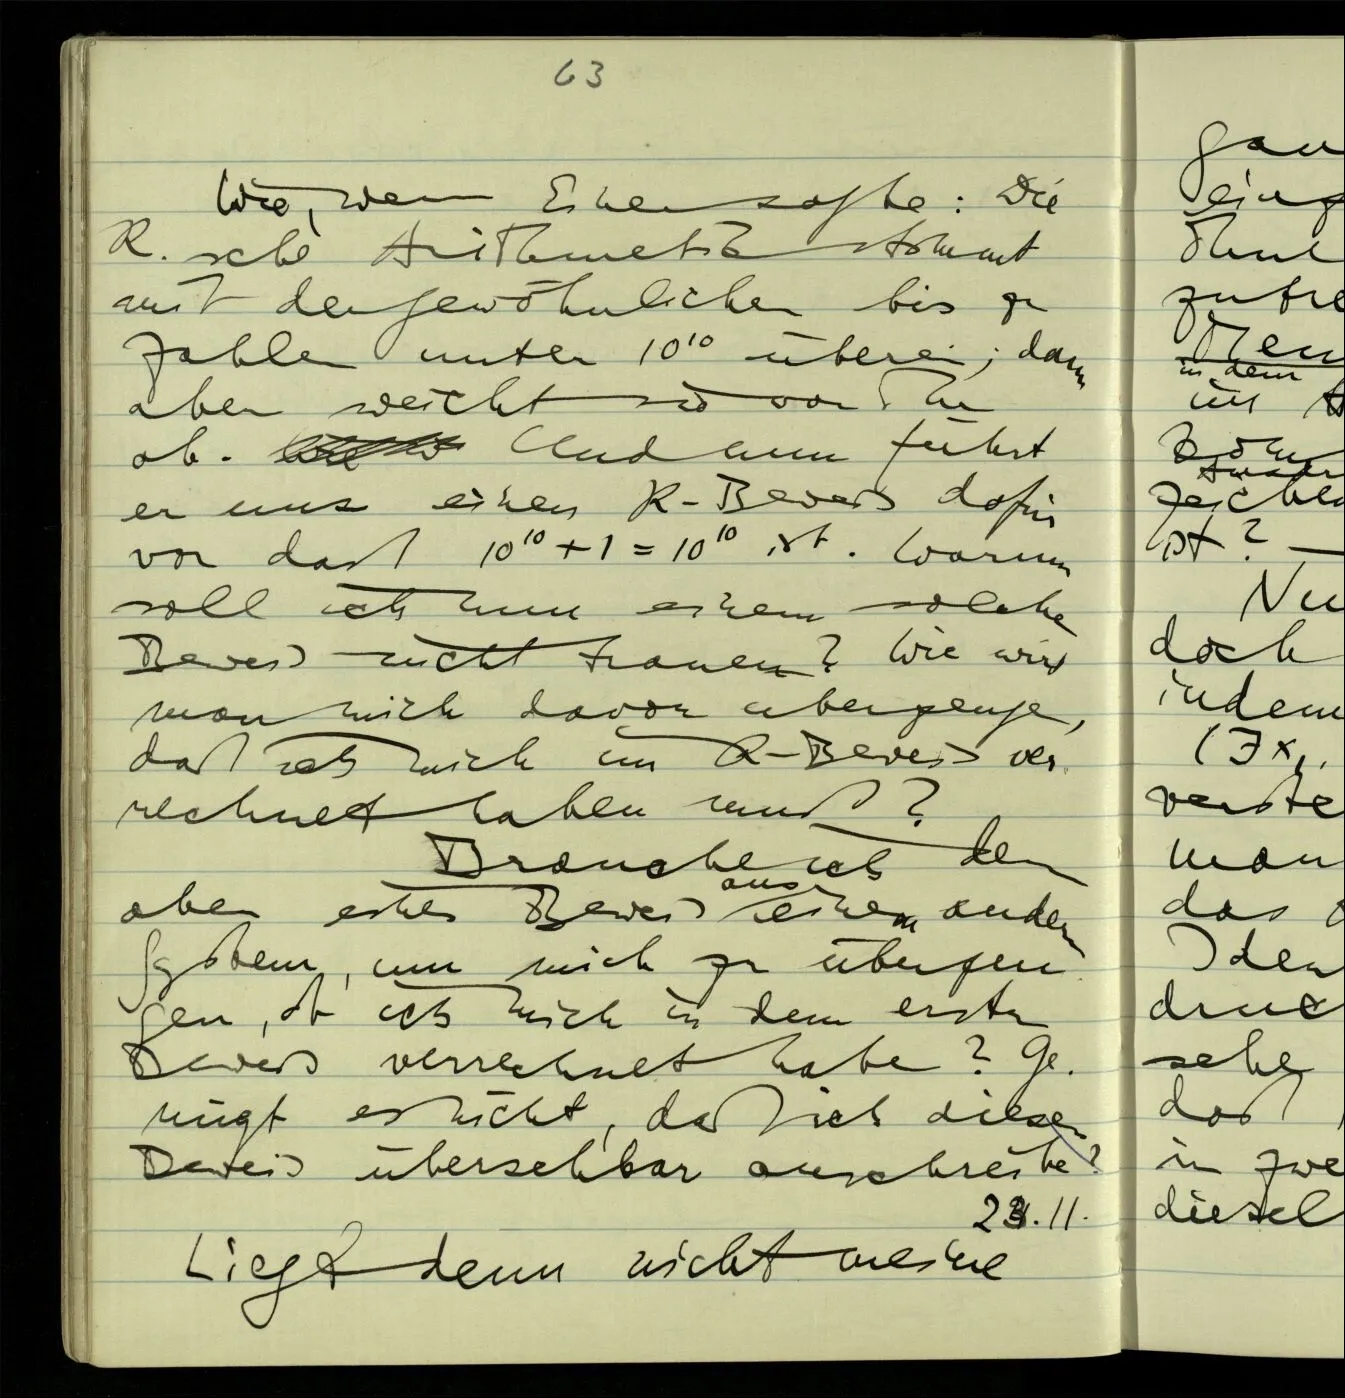 63
Wie, wenn Einer sagte: Die
R.sche Arithmetik stimmt
mit der gewöhnlichen bis zu
Zahlen unter 10¹⁰ überein; dann
aber weicht sie von ihr
ab. Und nun führt
er uns einen R-Beweis dafür
vor daß 10¹⁰ + 1 = 10¹⁰ ist. Warum
soll ich nun einem solchen
Beweis nicht trauen? Wie wird
man mich davon überzeugen,
daß ich mich im R-Beweis ver
rechnet haben muß?
Brauche ich denn
aber einen Beweis aus einem andern
System, um mich zu überzeu
gen, ob ich mich in dem ersten
Beweis verrechnet habe? Ge.
nügt es nicht, daß ich diesen
Beweis übersehbar anschreibe?
23.11.
Liegt denn nicht meine
zutre
in dem
ist? —
Nu
doch
indem
(∃x,.
verste
man
das
Iden
druc
sehe
daß
in zwe
diesel